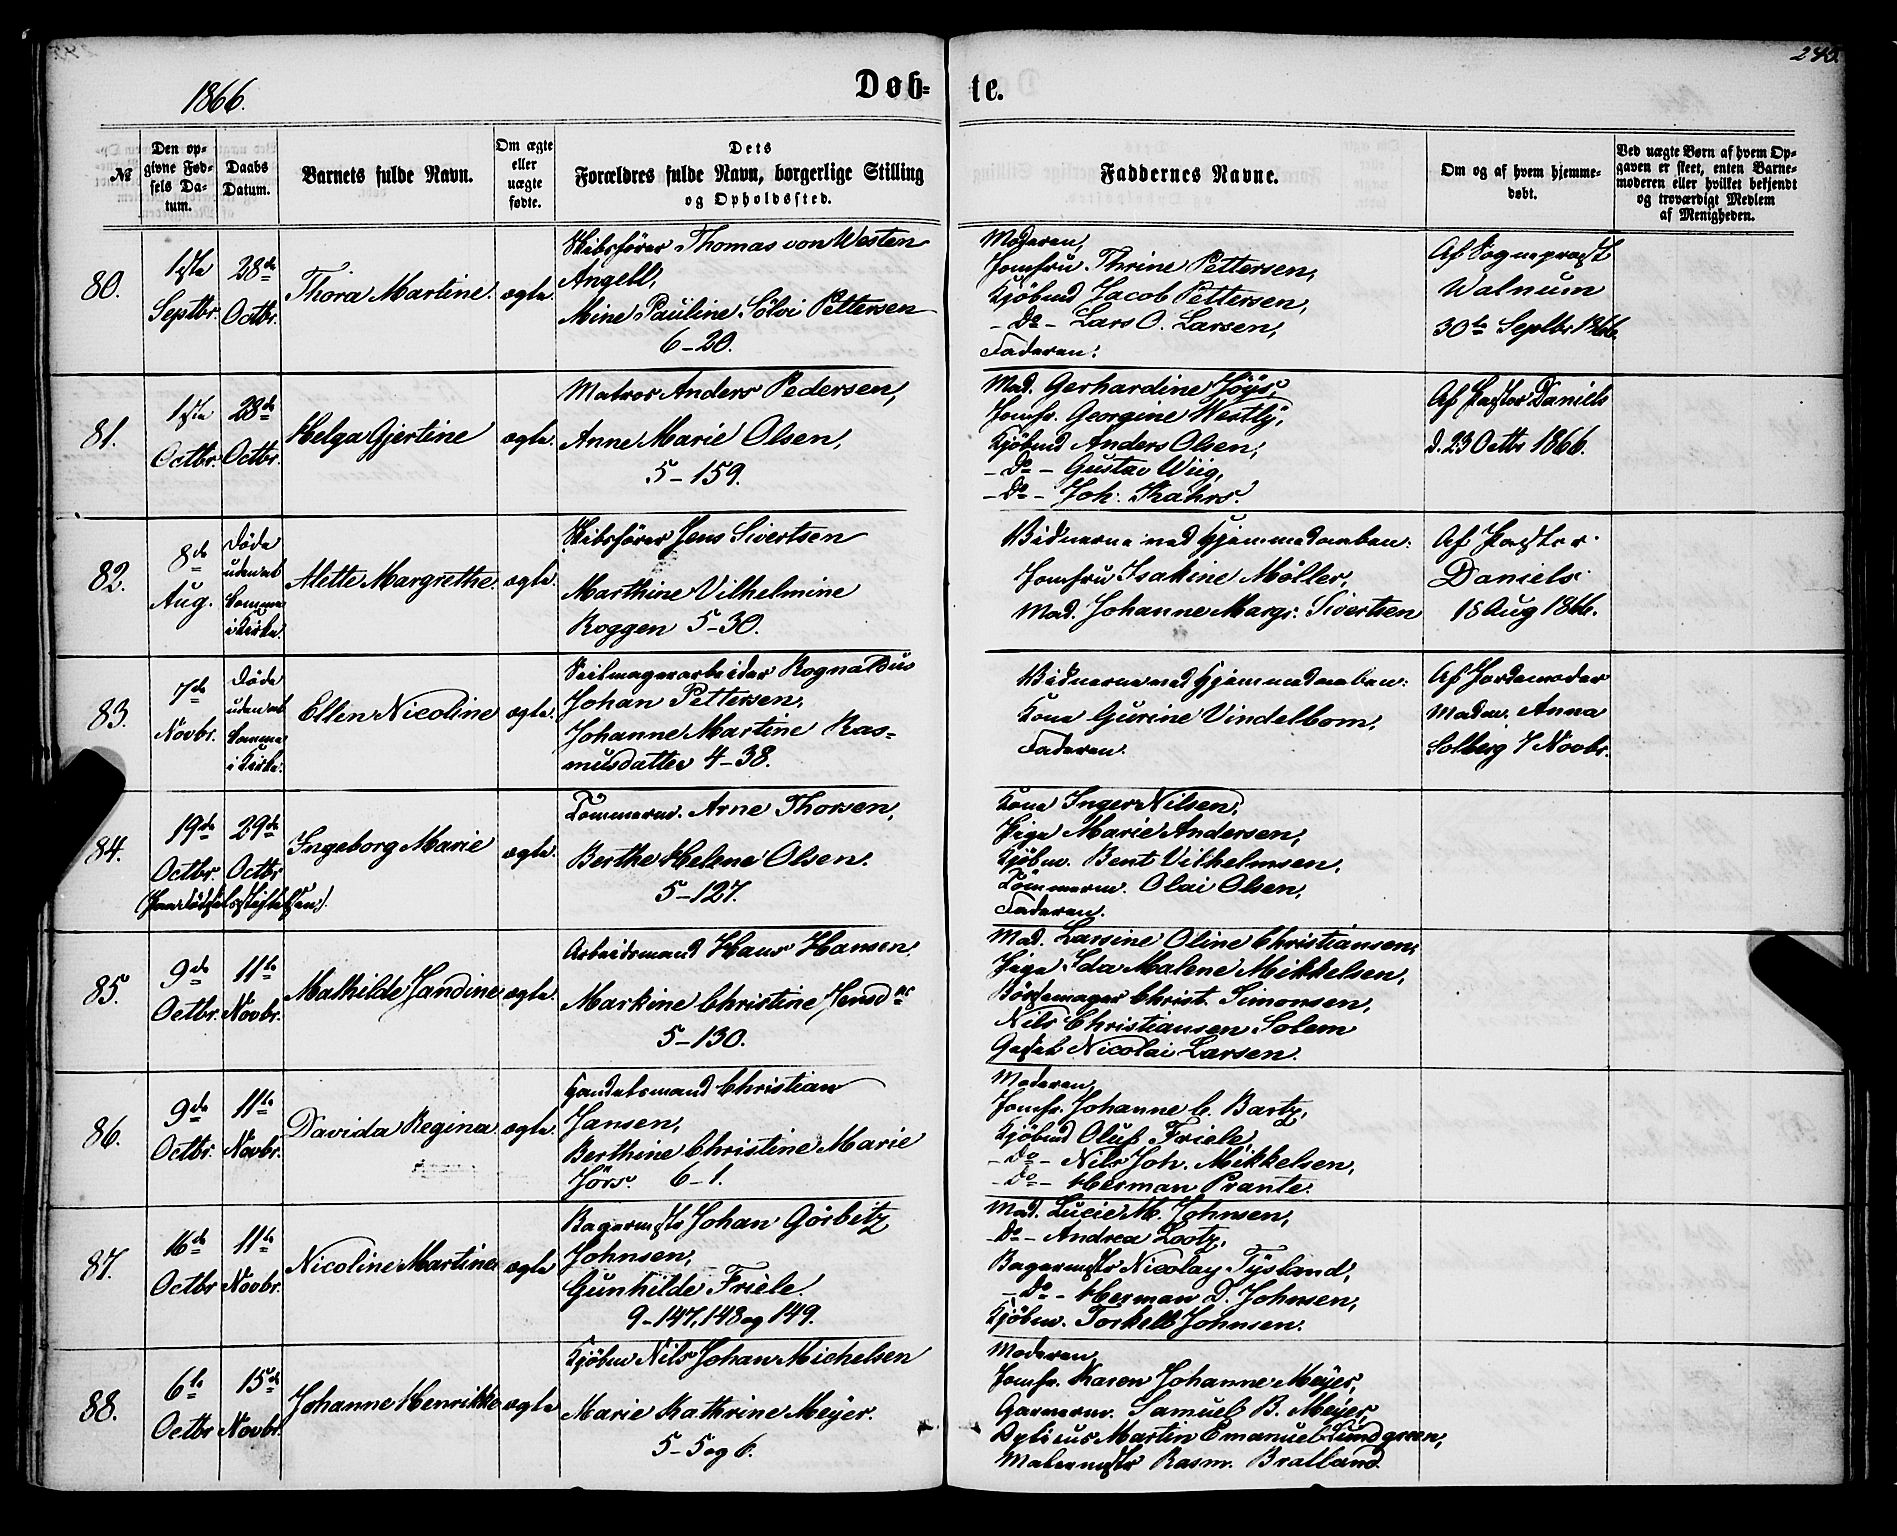 240.
1866.
Døb-
te.
№
Den op-
givne Fød-
sels Da-
tum.
Daabs
Datum.
Barnets fulde Navn.
Om ægte
eller
uægte
fødte.
Dets
Forældres fulde Navn, borgerlige Stilling
og Opholdssted.
Faddernes Navne.
Om og af hvem hjemme-
døbt.
Ved uægte Børn af hvem Op-
gaven er skeet, enten Barne-
moderen eller hvilket bekjendt
og troværdigt Medlem
af Menigheden.
80.
1ste
Septbr.
28de
Octbr.
Thora Martine.
ægte.
Skibsfører Thomas von Westen
Angell,
Mine Pauline Sølvi Pettersen
6-20.
Moderen,
Jomfru Thrine Pettersen,
Kjøbmd Jacob Pettersen,
-Do- Lars O. Larsen,
Faderen.
Af Sognepræst
Walnum
30te Septbr 1866.
81.
1ste
Octbr.
28de
Octbr.
Helga Gjertine
ægte.
Matros Anders Pedersen,
Anne Marie Olsen,
5-159.
Mad. Gerhardine Høÿs,
Jomfr. Georgine Westlÿ,
Kjøbmd Anders Olsen,
-Do- Gustav Wiig,
-Do- Joh. Kahrs.
Af Pastor Daniels
d. 23 Octbr 1866.
82.
8de
Aug.
Døde
uden at
komme
i Kirke.
Alette Margrethe.
ægte.
Skibsfører Jens Sivertsen
Marthine Vilhelmine
Roggen 5-30.
Vidnerne ved Hjemmedaaben:
Jomfru Isakine Møller,
Mad. Johanne Margr: Sivertsen
Af Pastor
Daniels
15 Aug 1866.
83.
7de
Novbr.
Døde
uden at
komme
i Kirke.
Ellen Nicoline
ægte.
Seilmagerarbeider Rognaldus
Johan Pettersen,
Johanne Martine Ras=
musdatter 4-38.
Vidnerne ved Hjemmedaaben:
Kone Gurine Vindelbom,
Faderen.
Af Jordemoder
Madm. Anna
Solberg 7 Novbr.
84.
19de
Octbr.
29de
Octbr
(Paa Fødselsstiftelsen).
Ingeborg Marie
ægte.
Tømmerm. Arne Thorsen,
Berthe Helene Olsen.
5-127.
Kone Inger Nilsen,
Pige Marie Andersen,
Kjøbm. Bent Vilhelmsen,
Tømmerm. Olai Olsen,
Faderen.
85.
9de
Octbr.
11te
Novbr.
Mathilde Jandine
ægte.
Arbeidsmand Hans Hansen,
Markine Christine Jensdtr
5-130.
Mad. Larsine Oline Christiansen,
Pige Ida Malene Mikkelsen,
Børstemager Christ. Simonsen,
Nils Christiansen Solem
Gesel Nicolai Larsen.
86.
9de
Octbr.
11te
Novbr.
Davida Regina.
ægte.
Handelsmand Christian
Jansen,
Berthine Christine Marie
Jörs. 6-1.
Moderen,
Jomfr. Johanne C. Bartz,
Kjøbmd Oluf Friele,
-Do- Nils Joh. Mikkelsen,
-Do- Herman Prante.
87.
16de
Octbr
11te
Novbr.
Nicoline Martine
ægte
Bagermstr Johan Görbitz
Johnsen,
Gunhilde Friele.
9-147, 148 og 149.
Mad. Lucie M. Johnsen,
-Do- Andrea Lootz,
Bagermstr Nicolay Tÿsland,
-Do- Herman D. Johnsen,
Kjøbm. Torkell Johnsen.
88.
6te
Octbr
15de
Novbr.
Johanne Henrikke
ægte
Kjøbm Nils Johan Michelsen
Marie Kathrine Meÿer.
5-5 og 6.
Moderen,
Jomfr. Karen Johanne Meÿer,
Garverm. Samuel B. Meÿer,
Martin Emanuel Lundgreen,
Malermstr Rasm. Bratland.